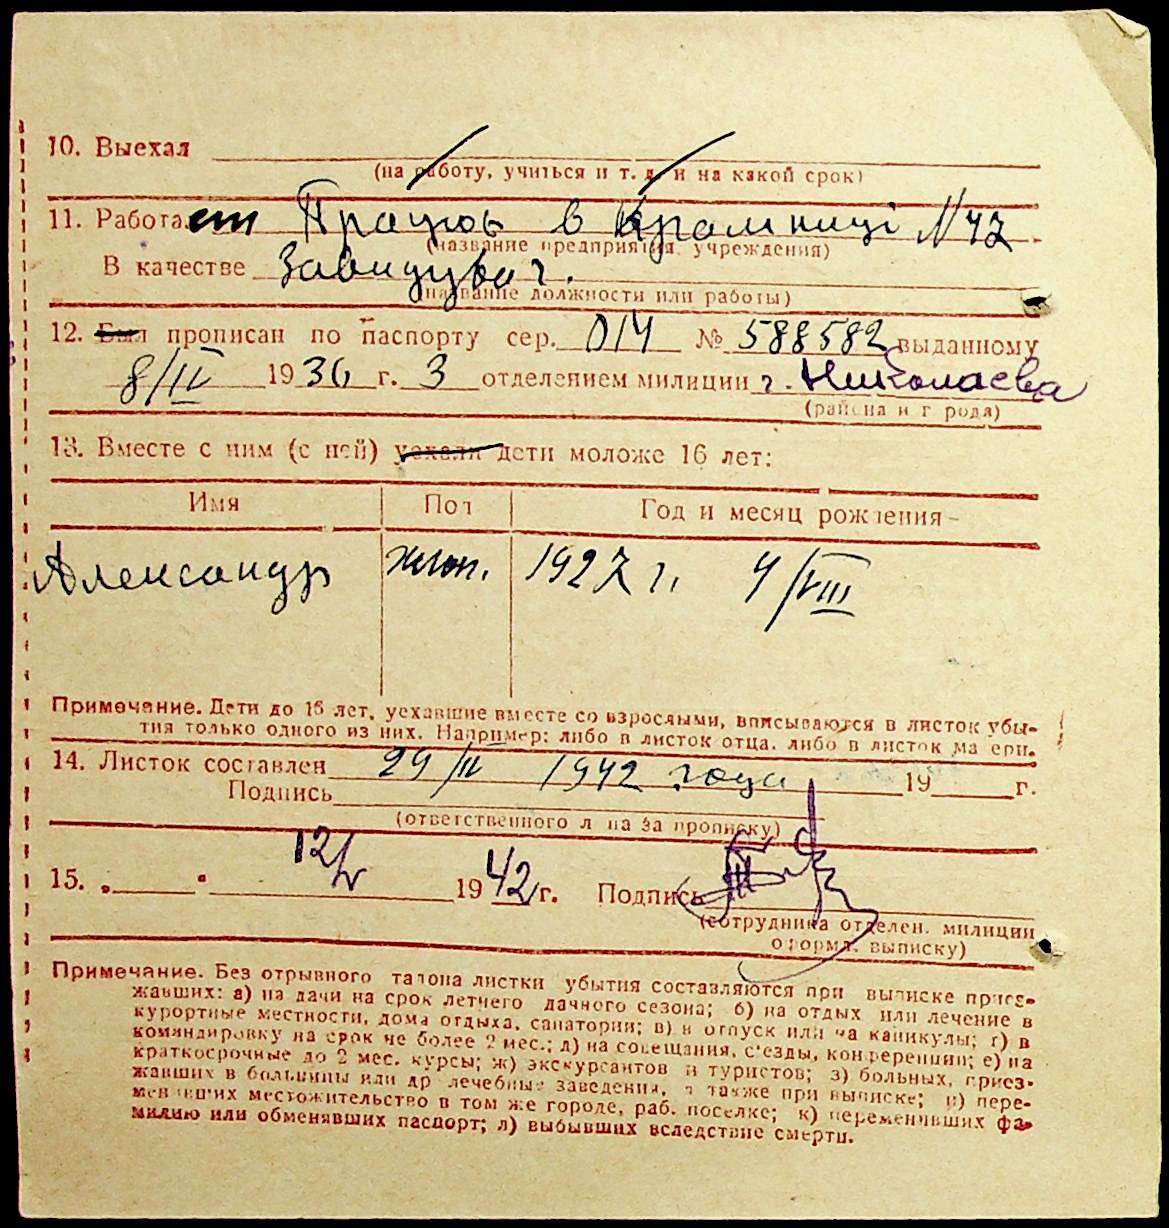 10. Выехал
(на работу, учиться и т. д. и на какой срок)
11. Работа Працює в Крамниці N 47
(название предприятия, учреждения)
В качестве Завидувач.
(название должности или работы)
12. Был прописан по паспорту сер. ОІЧ № 588582 выданному
8/IV 1936 г. 3 отделением милиции г. Николаева
(района и города)
13. Вместе с ним (с ней) уехали дети моложе 16 лет:
Имя Пол Год и месяц рождения
Александр хлоп. 1927 г. 4/VIII
Примечание. Дети до 16 лет, уехавшие вместе со взрослыми, вписываются в листок убы-
тия только одного из них. Например: либо в листок отца, либо в листок матери.
14. Листок составлен 29/II 1942 года 19 г.
Подпись
(ответственного лица за прописку)
15. 12/V 1942 г. Подпись
(сотрудника отделен. милиции
оформл. выписку)
Примечание. Без отрывного талона листки убытия составляются при выписке приез-
жавших: а) на дачи на срок летнего дачного сезона; б) на отдых или лечение в
курортные местности, дома отдыха, санатории; в) в отпуск или на каникулы; г) в
командировку на срок не более 2 мес.; д) на совещания, съезды, конференции; е) на
краткосрочные до 2 мес. курсы; ж) экскурсантов и туристов; з) больных, приез-
жавших в больницы или др лечебные заведения, а также при выписке; и) пере-
менивших местожительство в том же городе, раб. поселке; к) переменивших фа-
милию или обменявших паспорт; л) выбывших вследствие смерти.